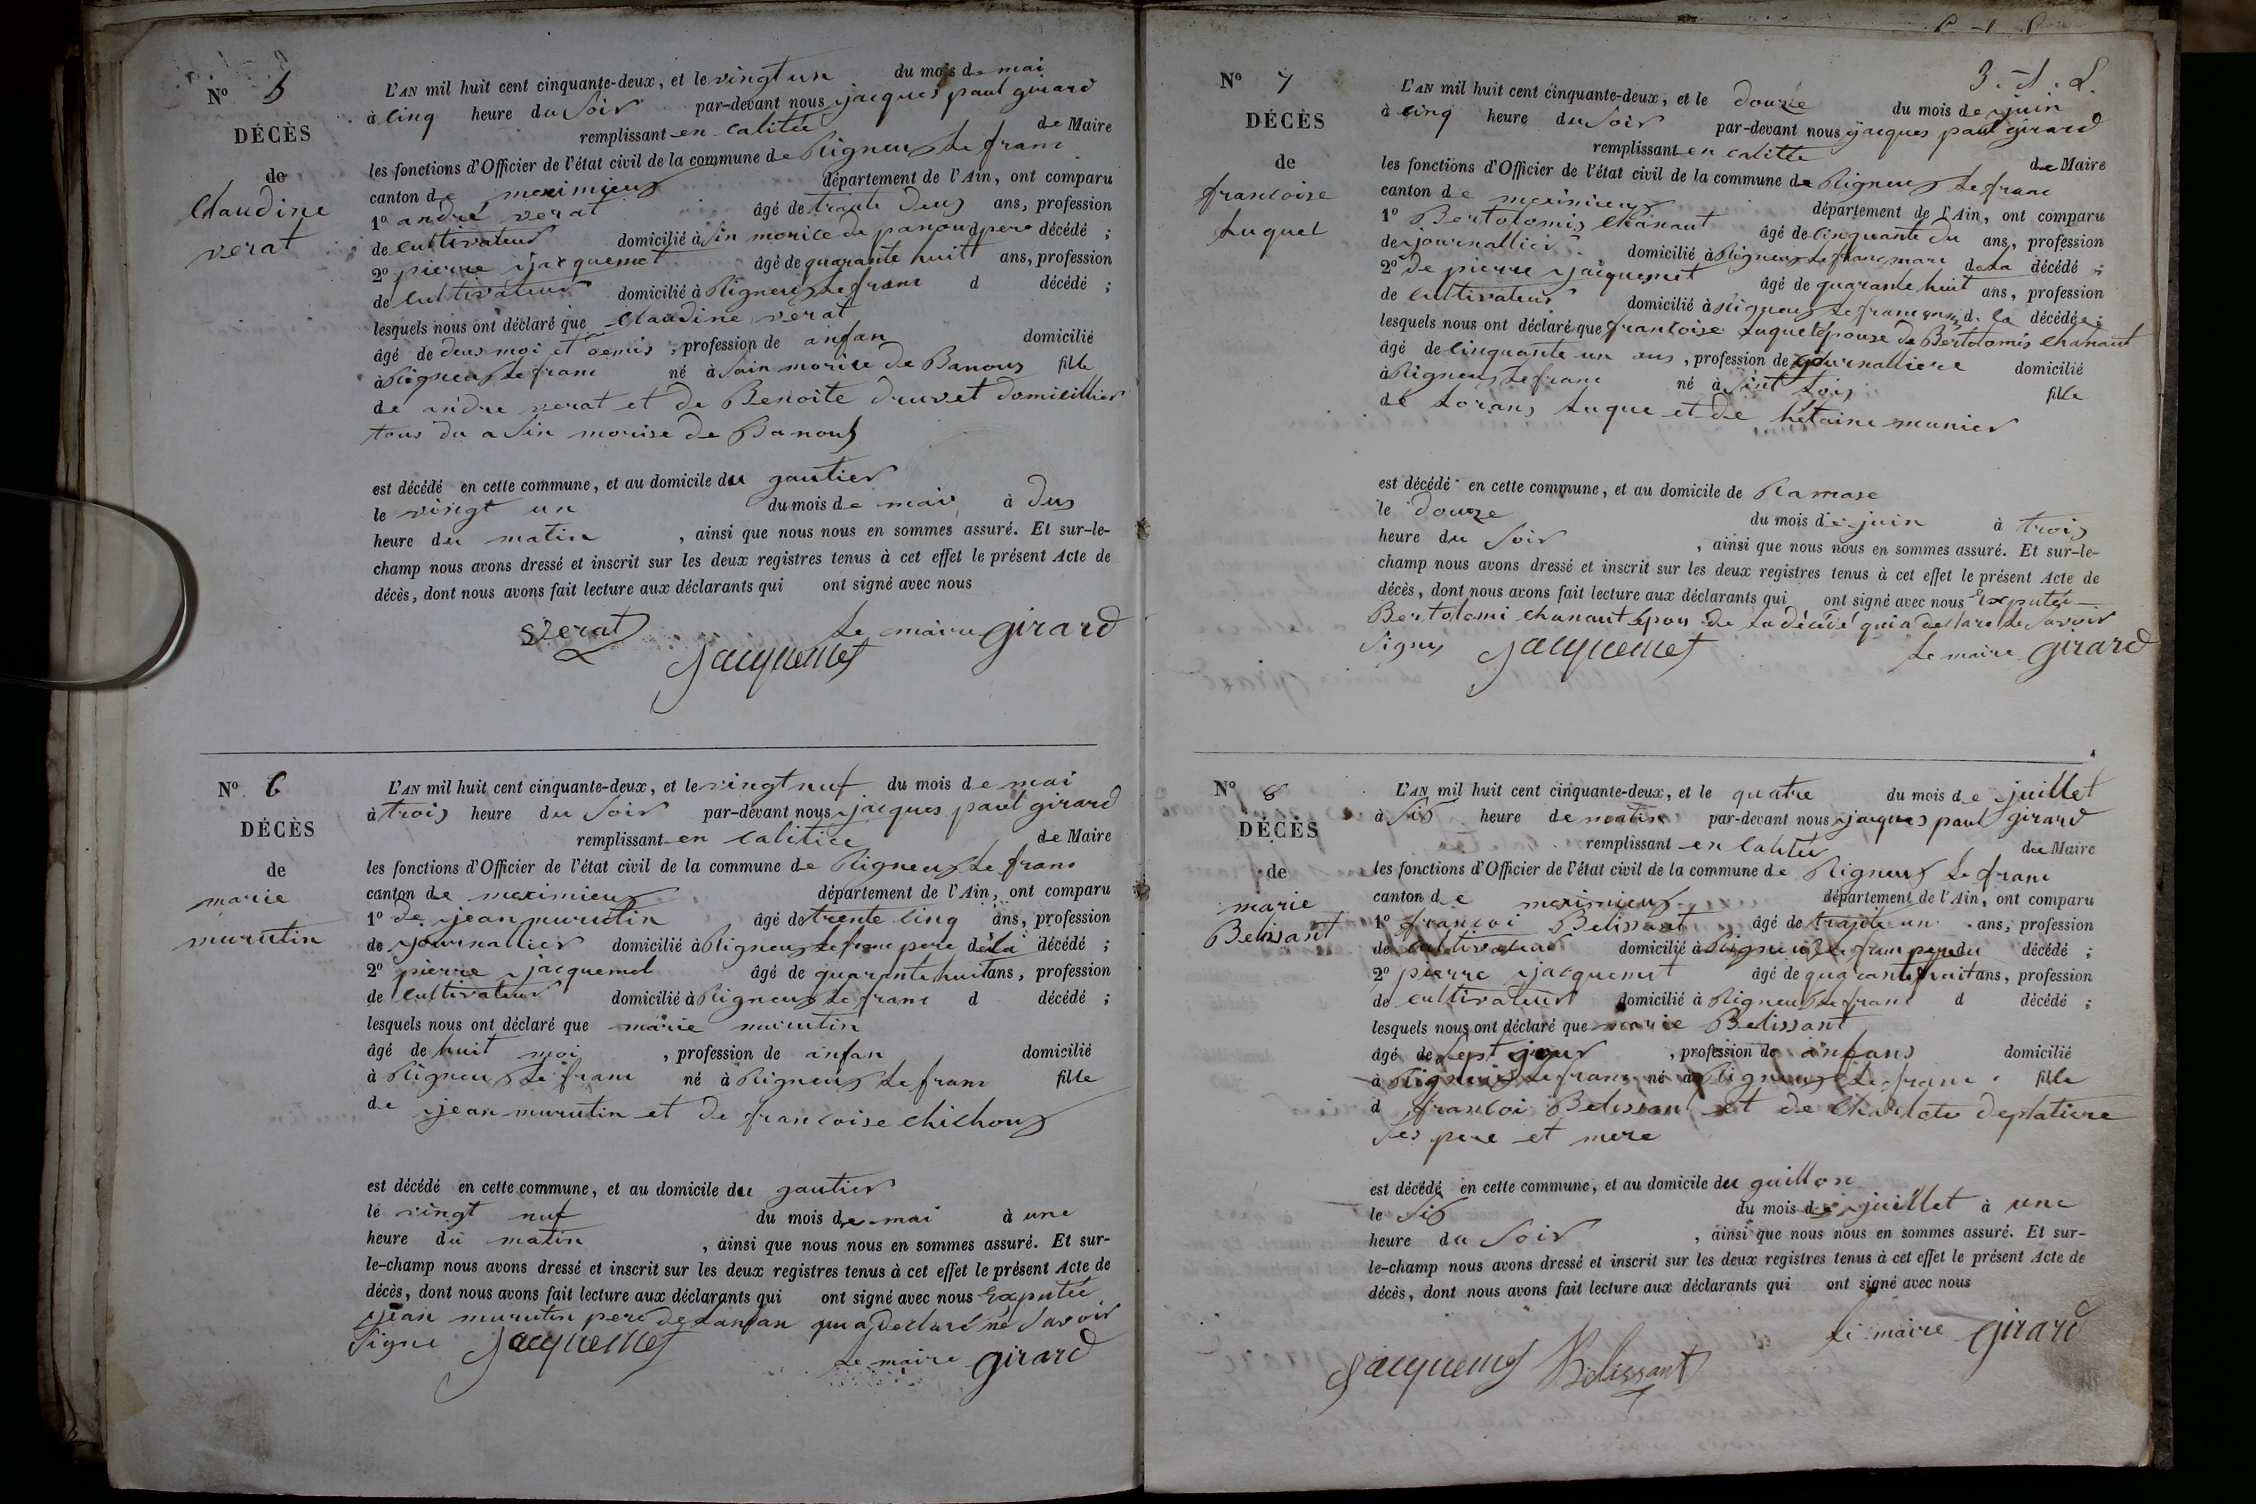 N° 5
DÉCÈS
de
Claudine
verat
L'AN mil huit cent cinquante-deux, et le vingt un du mois de mai
à cinq heure du soir par-devant nous jacques paul girard
remplissant en calitée de Maire
les fonctions d'Officier de l'état civil de la commune de Rigneux le franc
canton de meximieux département de l'Ain, ont comparu
1° andré verat âgé de trante deux ans, profession
de cultivateur domicilié à sin morice de panoud pere décédé ;
2° pierre jacquemet âgé de quarante huit ans, profession
de cultivateur domicilié à Rigneux le franc d décédé ;
lesquels nous ont déclaré que Claudine verat
âgé de deux moi et demis, profession de anfan domicilié
à Rigneux le franc né à sain morice de Banoux fille
de andre verat et de Benoite druvet domicillier
tous du a sin morise de Banoux
est décédé en cette commune, et au domicile du gautier
le vingt un du mois de mai à dus
heure du matin , ainsi que nous nous en sommes assuré. Et sur-le-
champ nous avons dressé et inscrit sur les deux registres tenus à cet effet le présent Acte de
décès, dont nous avons fait lecture aux déclarants qui ont signé avec nous
Verat le maire girard
jacquemet
N° 6
DÉCÈS
de
marie
murutin
L'AN mil huit cent cinquante-deux, et le vingt nuf du mois de mai
à trois heure du soir par-devant nous jacques paul girard
remplissant en calitice de Maire
les fonctions d'Officier de l'état civil de la commune de Rigneux le franc
canton de meximieux département de l'Ain, ont comparu
1° de jean murutin âgé de trente cinq ans, profession
de journallier domicilié à Rigneux le franc pere de la décédé ;
2° pierre jacquemet âgé de quarante huit ans, profession
de cultivateur domicilié à Rigneux le franc d décédé ;
lesquels nous ont déclaré que marie murutin
âgé de huit moi , profession de anfan domicilié
à Rigneux le franc né à Rigneux le franc fille
de jean murutin et de francoise chichoux
est décédé en cette commune, et au domicile du gautier
le vingt nuf du mois de mai à une
heure du matin , ainsi que nous nous en sommes assuré. Et sur-
le-champ nous avons dressé et inscrit sur les deux registres tenus à cet effet le présent Acte de
décès, dont nous avons fait lecture aux déclarants qui ont signé avec nous Exputée
jean murutin pere de lanfan qui a declaré ne savoir
signe jacquemet
le maire girard
N° 7
DÉCÈS
de
francoise
luquet
L'AN mil huit cent cinquante-deux, et le douze du mois de juin
à cinq heure du soir par-devant nous jacques paul girard
remplissant en calitte de Maire
les fonctions d'Officier de l'état civil de la commune de Rigneux le franc
canton de meximieux département de l'Ain, ont comparu
1° Bertolomis Chanaut âgé de cinquante du ans, profession
de journallier domicilié à Rigneux le franc mari de la décédé ;
2° de pierre jacquemet âgé de quarante huit ans, profession
de cultivateur domicilié à Rigneux le franc d. la décédée ;
lesquels nous ont déclaré que francoise luquet épouse de Bertolomis Chanaut
âgé de cinquante un ans , profession de journalliere domicilié
à Rigneux le franc né à sint loix fille
de lorans luque et de hétaine munier
est décédé en cette commune, et au domicile de Ramase
le douze du mois de juin à trois
heure du soir , ainsi que nous nous en sommes assuré. Et sur-le-
champ nous avons dressé et inscrit sur les deux registres tenus à cet effet le présent Acte de
décès, dont nous avons fait lecture aux déclarants qui ont signé avec nous Exputée
Bertolomi Chanaut épou de la décédé qui a declare ne savoir
signes jacquemet le maire girard
N° 8
DÉCÈS
de
marie
Belissant
L'AN mil huit cent cinquante-deux, et le quatre du mois de juillet
à six heure de matin par-devant nous jacques paul girard
remplissant en calitée du Maire
les fonctions d'Officier de l'état civil de la commune de Rigneux le franc
canton de meximieux département de l'Ain, ont comparu
1° francoi Belissant âgé de trante un ans, profession
de cultivateur domicilié à Rigneux le franc pere du décédé ;
2° pierre jacquemet âgé de quarante huit ans, profession
de cultivateur domicilié à Rigneux le franc d décédé ;
lesquels nous ont déclaré que marie Belissant
âgé de sept jour , profession de anfans domicilié
à Rigneux le franc né à Rigneux le franc fille
d francoi Belissant et de Charlote deplatiere
ses pere et mere
est décédé en cette commune, et au domicile du guillon
le six du mois de juillet à une
heure du soir , ainsi que nous nous en sommes assuré. Et sur-
le-champ nous avons dressé et inscrit sur les deux registres tenus à cet effet le présent Acte de
décès, dont nous avons fait lecture aux déclarants qui ont signé avec nous
le maire girard
jacquemet Belissant